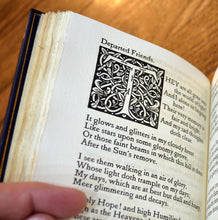 Departed Friends.
THEY are all
the world
And I
Their very
And my sad
doth clear.
It glows and glitters in my cloudy
Like stars upon some gloomy grove,
Or those faint beams in which this hill
After the Sun's remove.
I see them walking in an air of glory,
Whose light doth trample on my days,
My days, which are at best but dull
Meer glimmering and decays.
Holy Hope! and high
as the Heavens